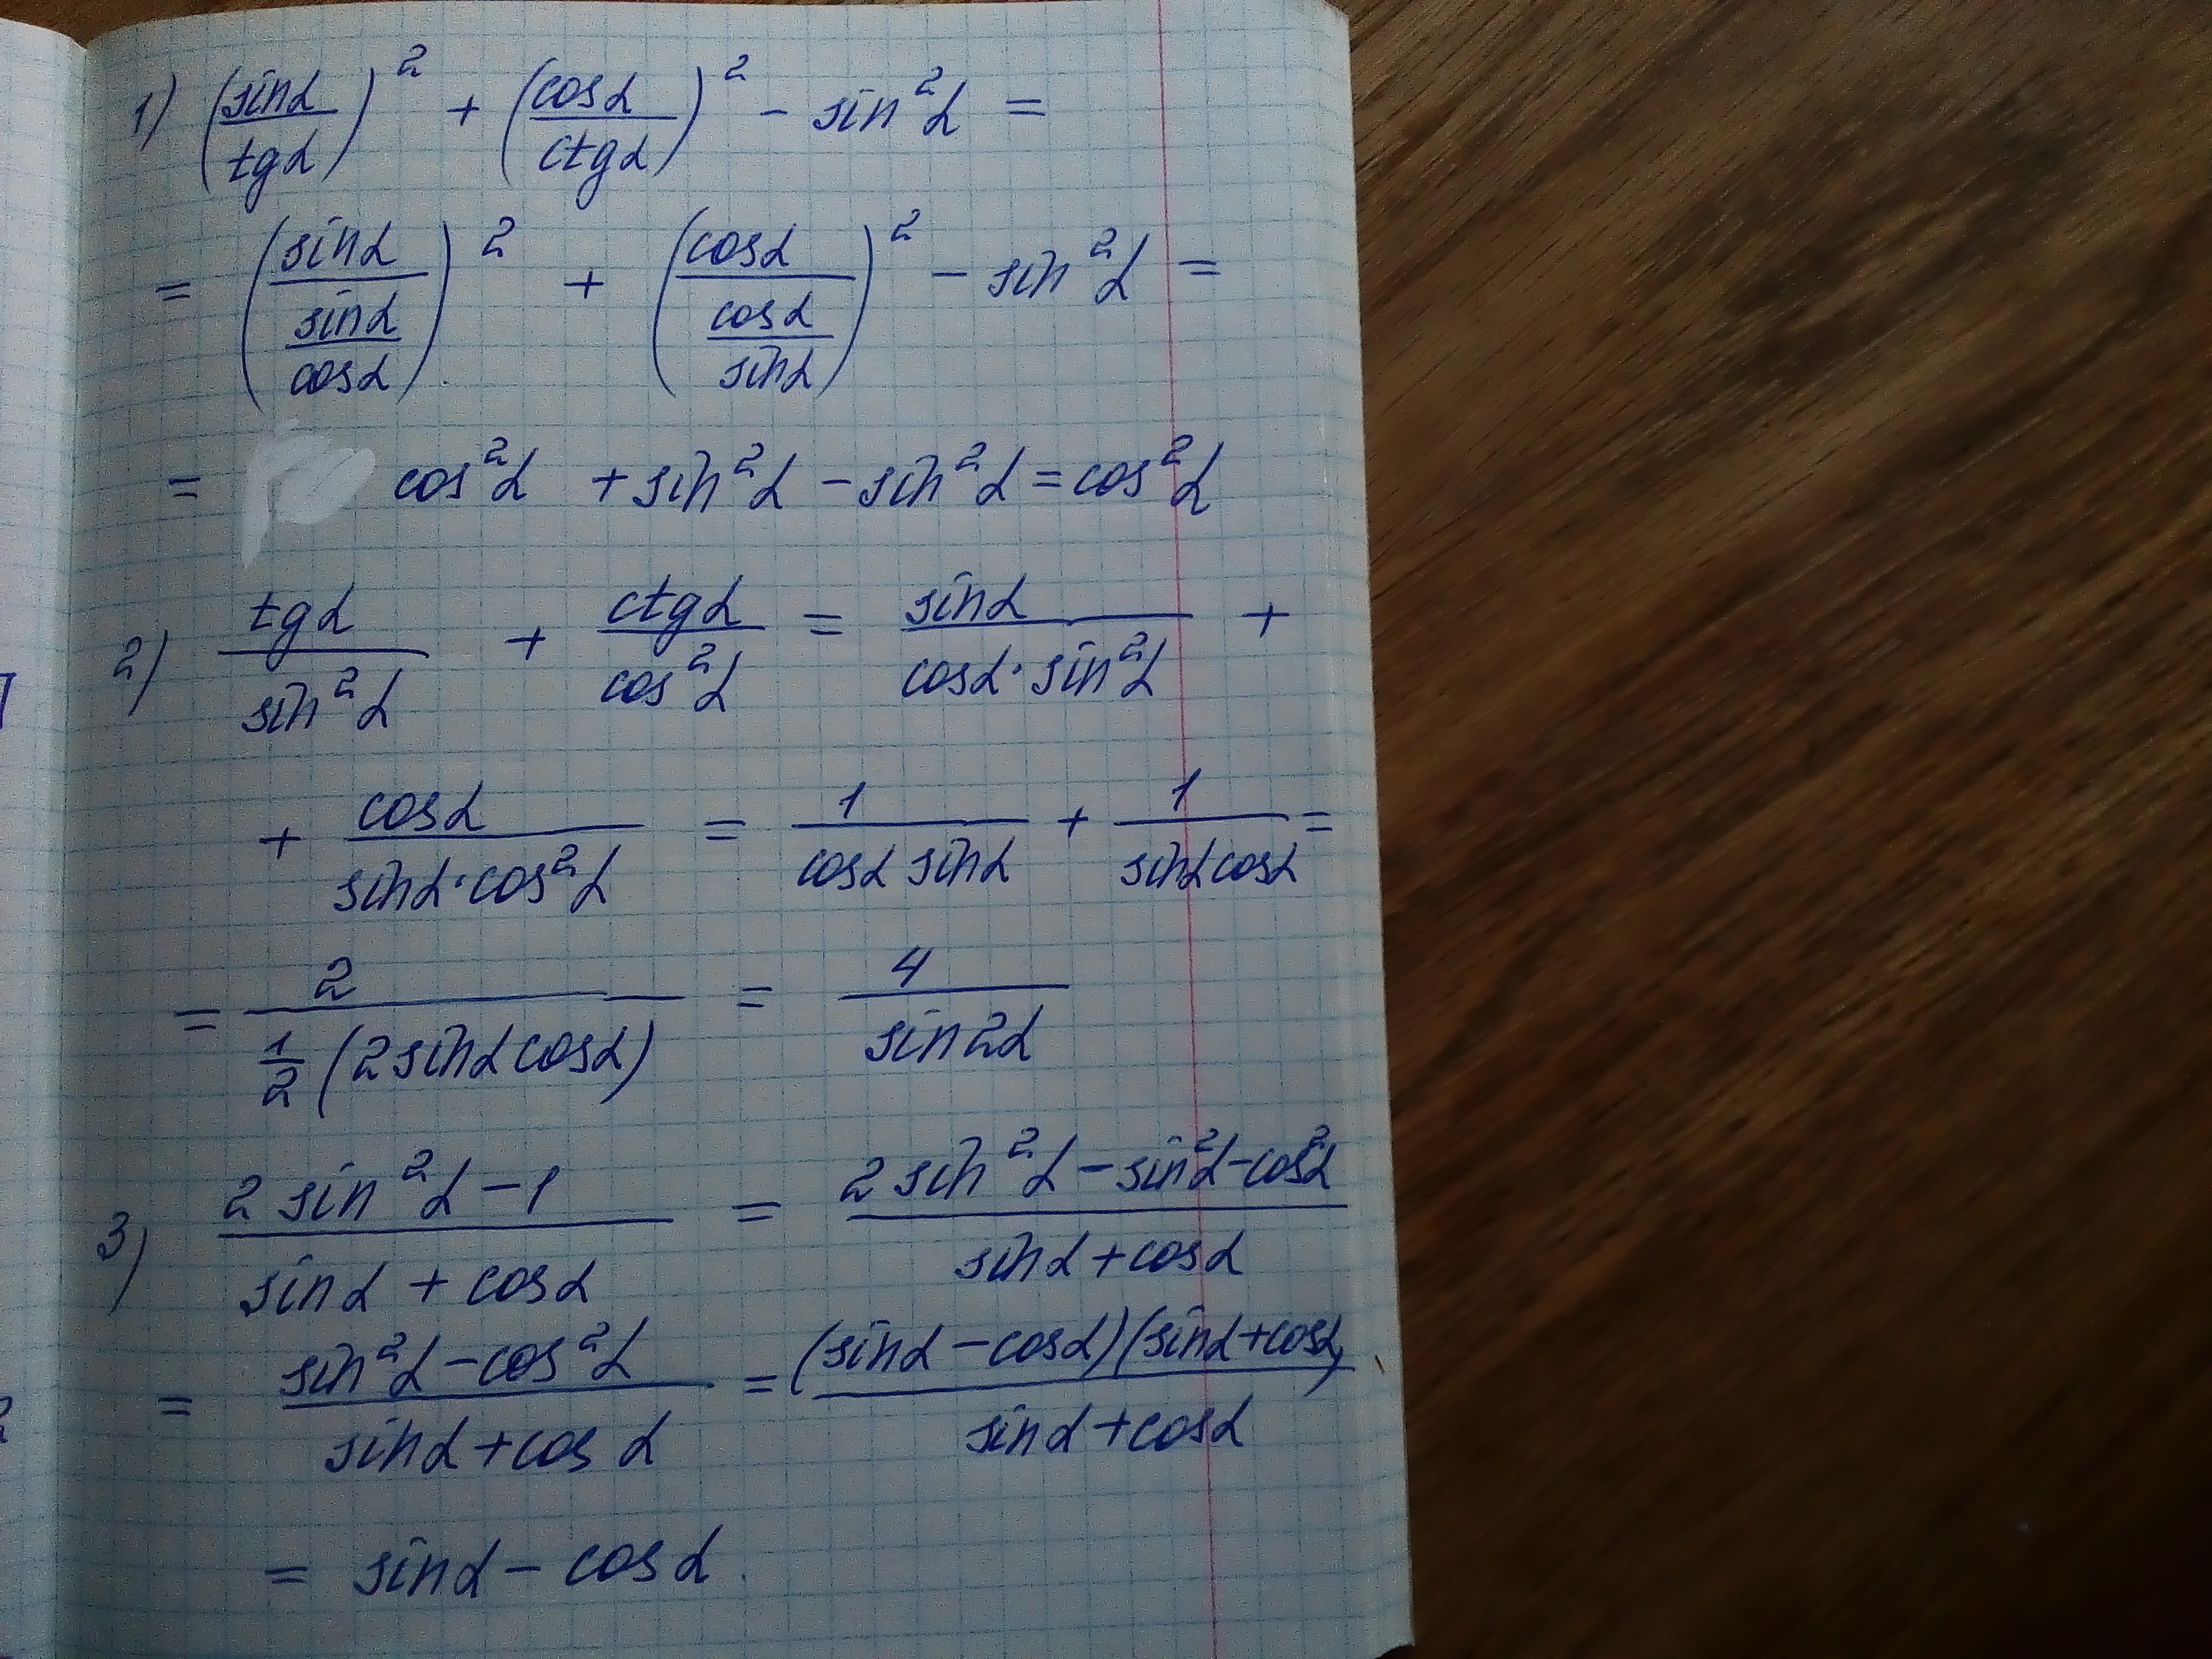 1) (sinα/tgα)² + (cosα/ctgα)² - sin²α =
= (sinα/(sinα/cosα))² + (cosα/(cosα/sinα))² - sin²α =
= cos²α + sin²α - sin²α = cos²α
2) tgα/sin²α + ctgα/cos²α = sinα/(cosα·sin²α) +
+ cosα/(sinα·cos²α) = 1/(cosα sinα) + 1/(sinα cosα) =
= 2/(1/2 (2sinα cosα)) = 4/sin2α
3) (2 sin²α - 1)/(sinα + cosα) = (2 sin²α - sin²α - cos²α)/(sinα + cosα)
= (sin²α - cos²α)/(sinα + cosα) = (sinα - cosα)(sinα + cosα)/(sinα + cosα)
= sinα - cosα.